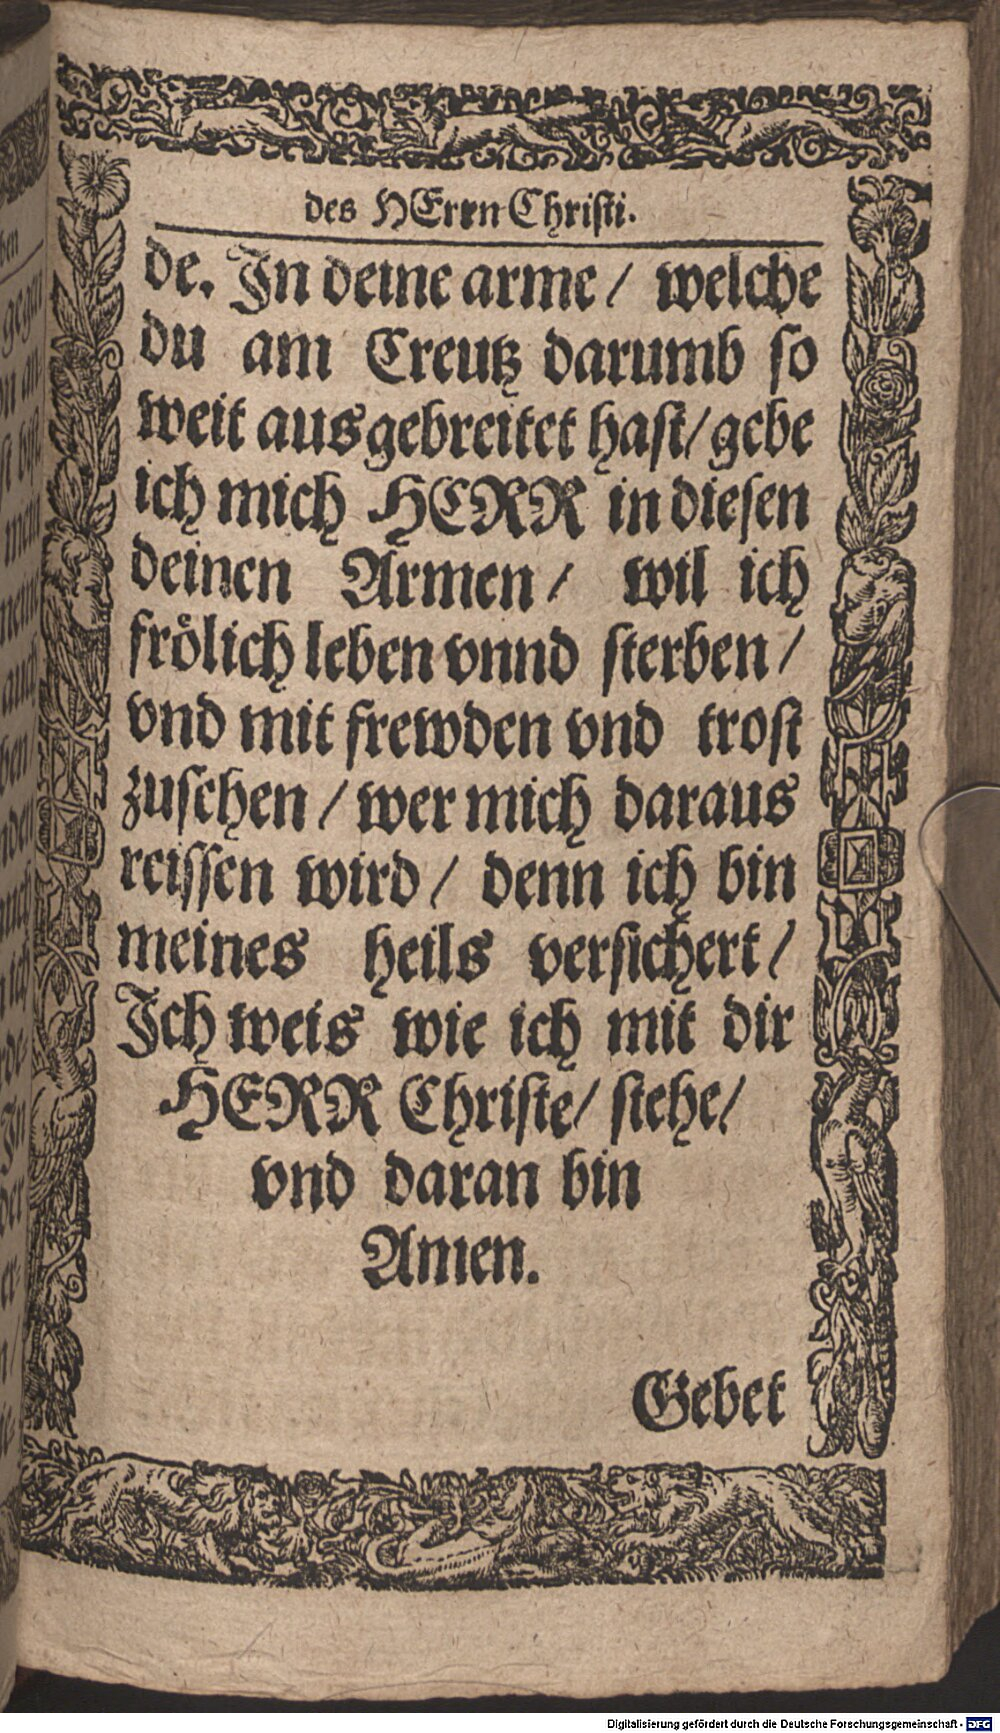 des HErrn Christi.
de. In deine arme / welche
du am Creutz darumb so
weit ausgebreitet hast / gebe
ich mich HERR in diesen
deinen Armen / wil ich
frölich leben vnnd sterben /
vnd mit frewden vnd trost
zusehen / wer mich daraus
reissen wird / denn ich bin
meines heils versichert /
Ich weis wie ich mit dir
HERR Christe / stehe /
vnd daran bin
Amen.
Gebet
Digitalisierung gefördert durch die Deutsche Forschungsgemeinschaft - DFG